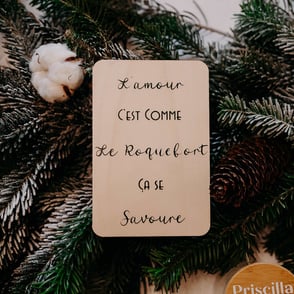 L'amour
C'EST COMME
Le Roquefort
ÇA SE
Savoure
Priscilla